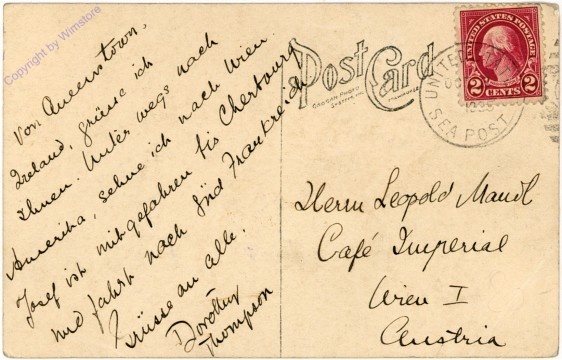 Copyright by Wimstore
Von Queenstown,
Ireland, grüsse ich
Ihnen. Unter wegs nach
Amerika, sehne ich nach Wien.
Josef ist mitgefahren bis Cherbourg
und fahrt nach Süd Frankreich
Grüsse an alle.
Dorothy
Thompson
Post Card
UNITED STATES POSTAGE
2 CENTS 2
UNITED
SEA POST
Herrn Leopold Mandl
Café Imperial
Wien I
Austria